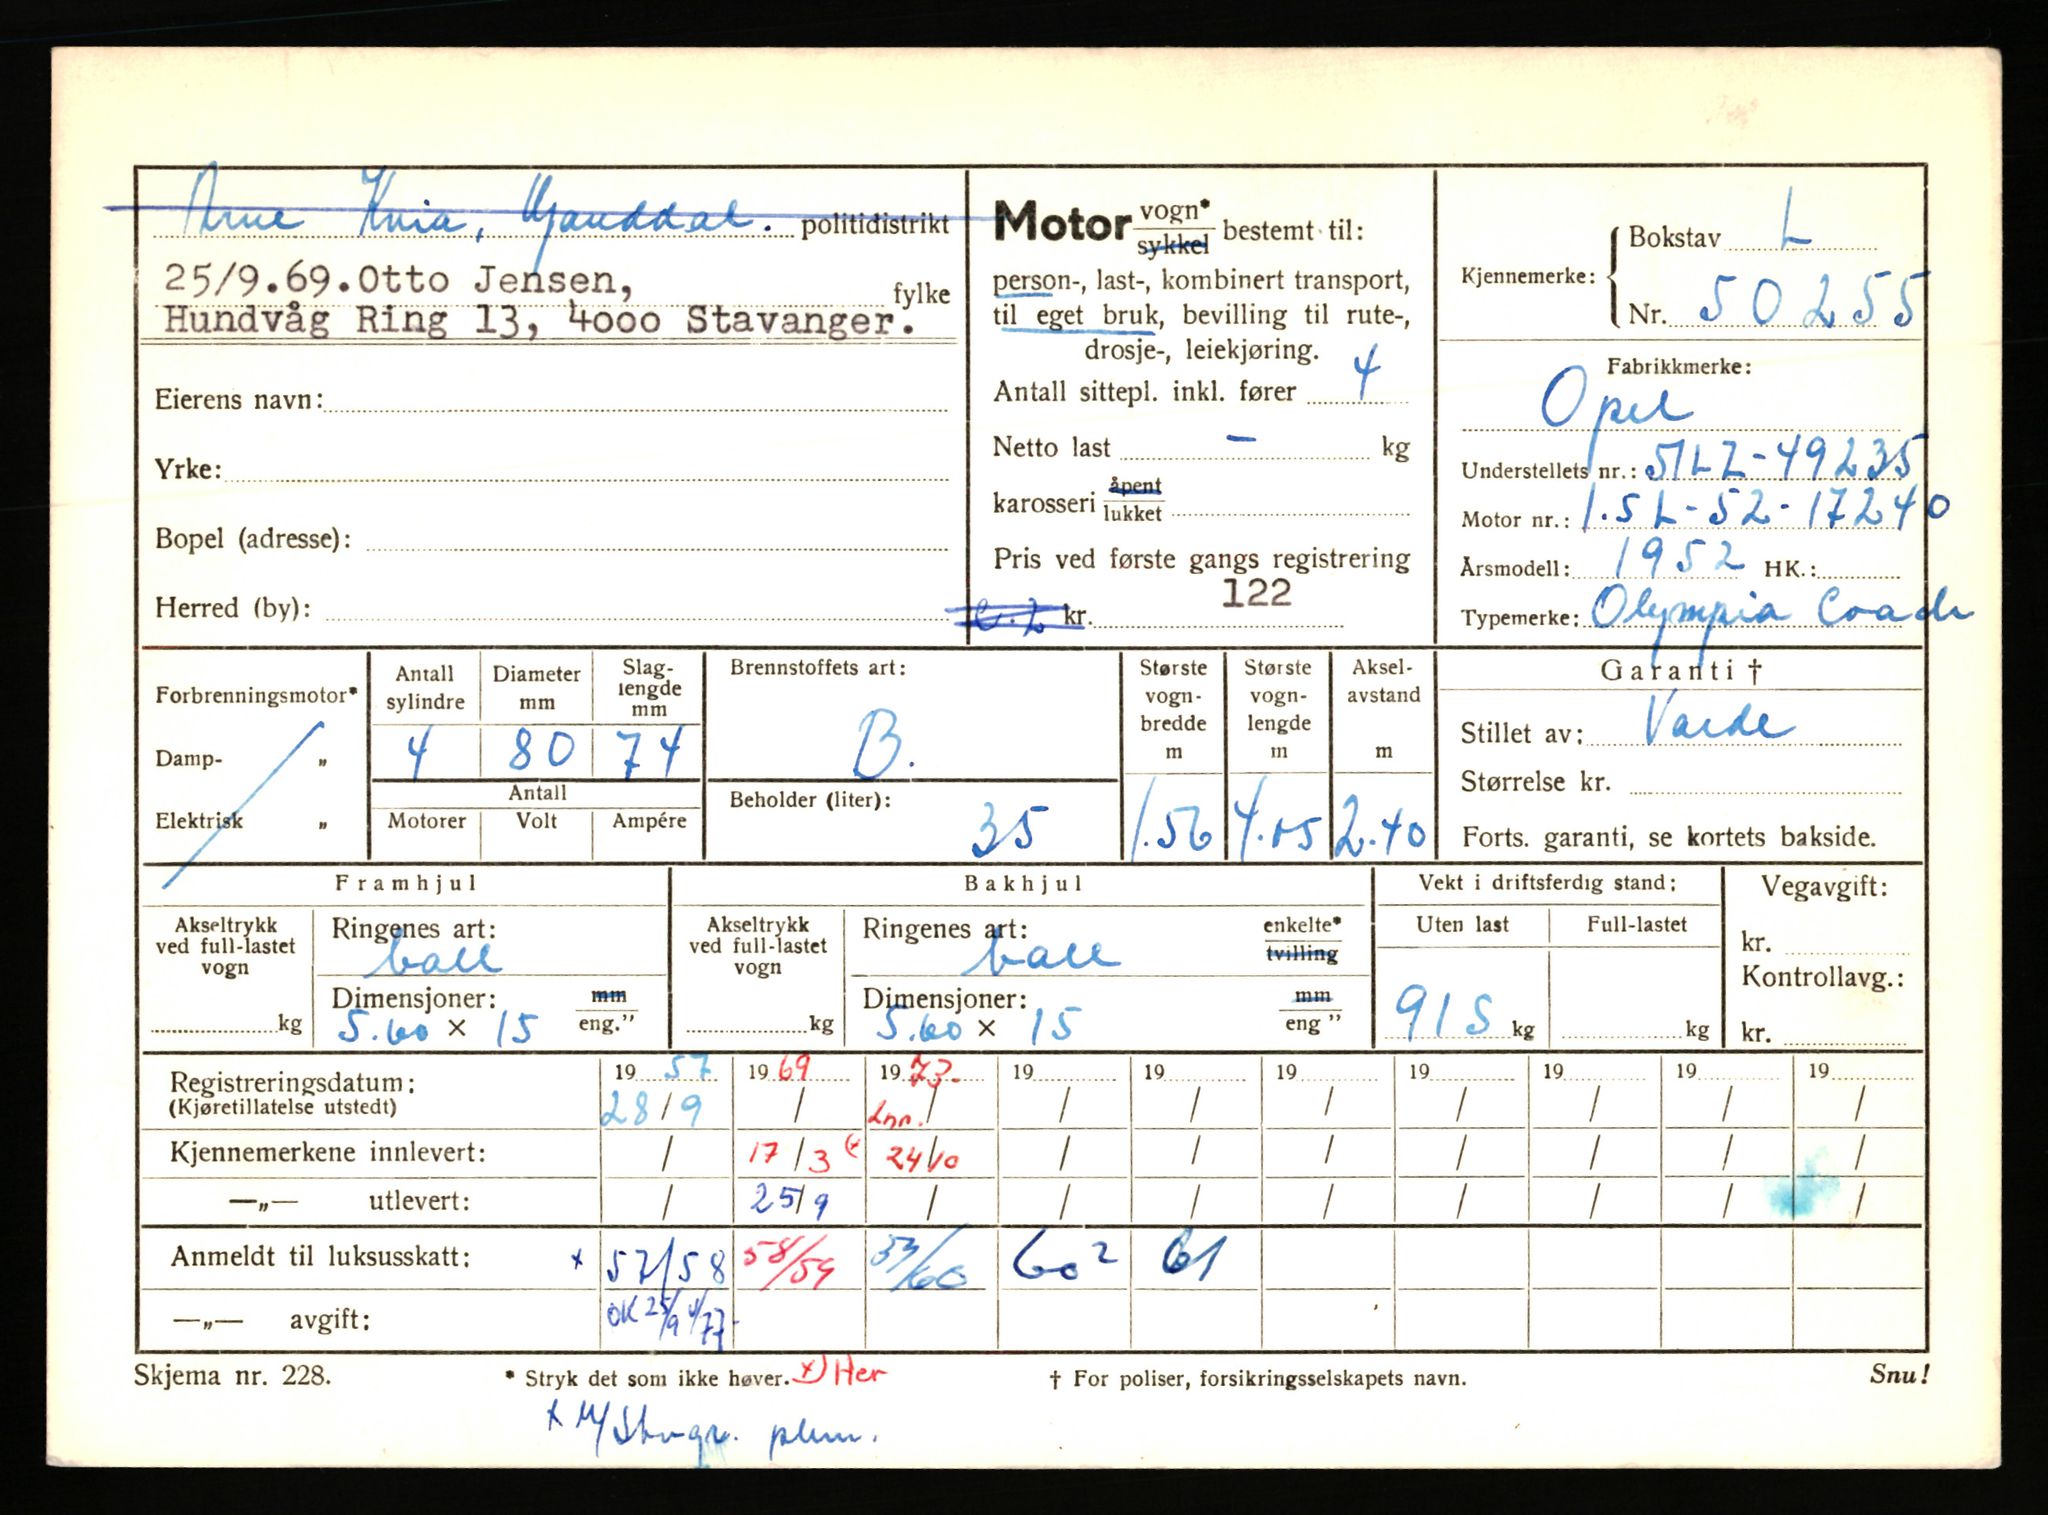 Arne Kvia, Ganddal. politidistrikt
25/9.69.Otto Jensen,
fylke
Hundvåg Ring 13, 4000 Stavanger.
Eierens navn:
Yrke:
Bopel (adresse):
Herred (by):
Motor vogn* sykkel bestemt til:
person-, last-, kombinert transport,
til eget bruk, bevilling til rute-,
drosje-, leiekjøring.
Antall sittepl. inkl. fører 4
Netto last – kg
karosseri åpent lukket
Pris ved første gangs registrering
kr. 122
Kjennemerke: Bokstav L
Nr. 50255
Fabrikkmerke:
Opel
Understellets nr.: 51LZ-49235
Motor nr.: 1.5L-52-17240
Årsmodell: 1952 HK.:
Typemerke: Olympia Coach
Forbrenningsmotor*
Damp- „
Elektrisk „
Antall sylindre 4
Diameter mm 80
Slaglengde mm 74
Antall
Motorer Volt Ampére
Brennstoffets art:
B.
Beholder (liter):
35
Største vogn-bredde m 1.56
Største vogn-lengde m 4.05
Aksel-avstand m 2.40
Garanti †
Stillet av: Varde
Størrelse kr.
Forts. garanti, se kortets bakside.
Framhjul
Akseltrykk ved full-lastet vogn
kg
Ringenes art:
ball
Dimensjoner: mm eng.”
5.60 × 15
Bakhjul
Akseltrykk ved full-lastet vogn
kg
Ringenes art: enkelte* tvilling
ball
Dimensjoner: mm eng ”
5.60 × 15
Vekt i driftsferdig stand:
Uten last Full-lastet
915 kg kg
Vegavgift:
kr.
Kontrollavg.:
kr.
19 57 19 69 19 73- 19 19 19 19 19 19 19
Registreringsdatum:
(Kjøretillatelse utstedt) 28/9 / Inn. / / / / / / / /
Kjennemerkene innlevert: / 17/3 (x 24/10 / / / / / / /
—„— utlevert: / 25/9 / / / / / / / /
Anmeldt til luksusskatt: x 57/58 58/59 59/60 60² 61
—„— avgift: OK 25/9
Skjema nr. 228. * Stryk det som ikke høver. x) Her † For poliser, forsikringsselskapets navn. Snu!